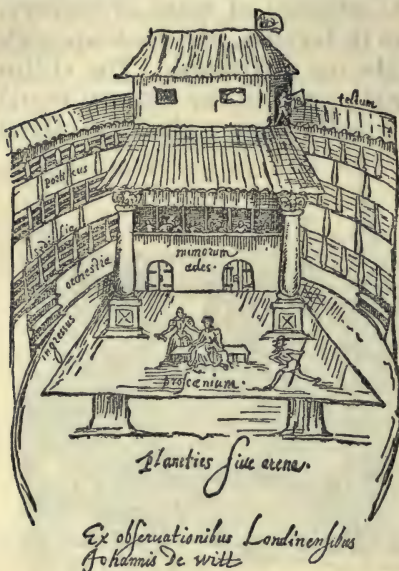 tectum
porticus
sedilia
orchestra
ingressus
mimorum
ædes.
proscænium.
planities siue arena.
Ex obseruationibus Londinensibus
Johannis De witt